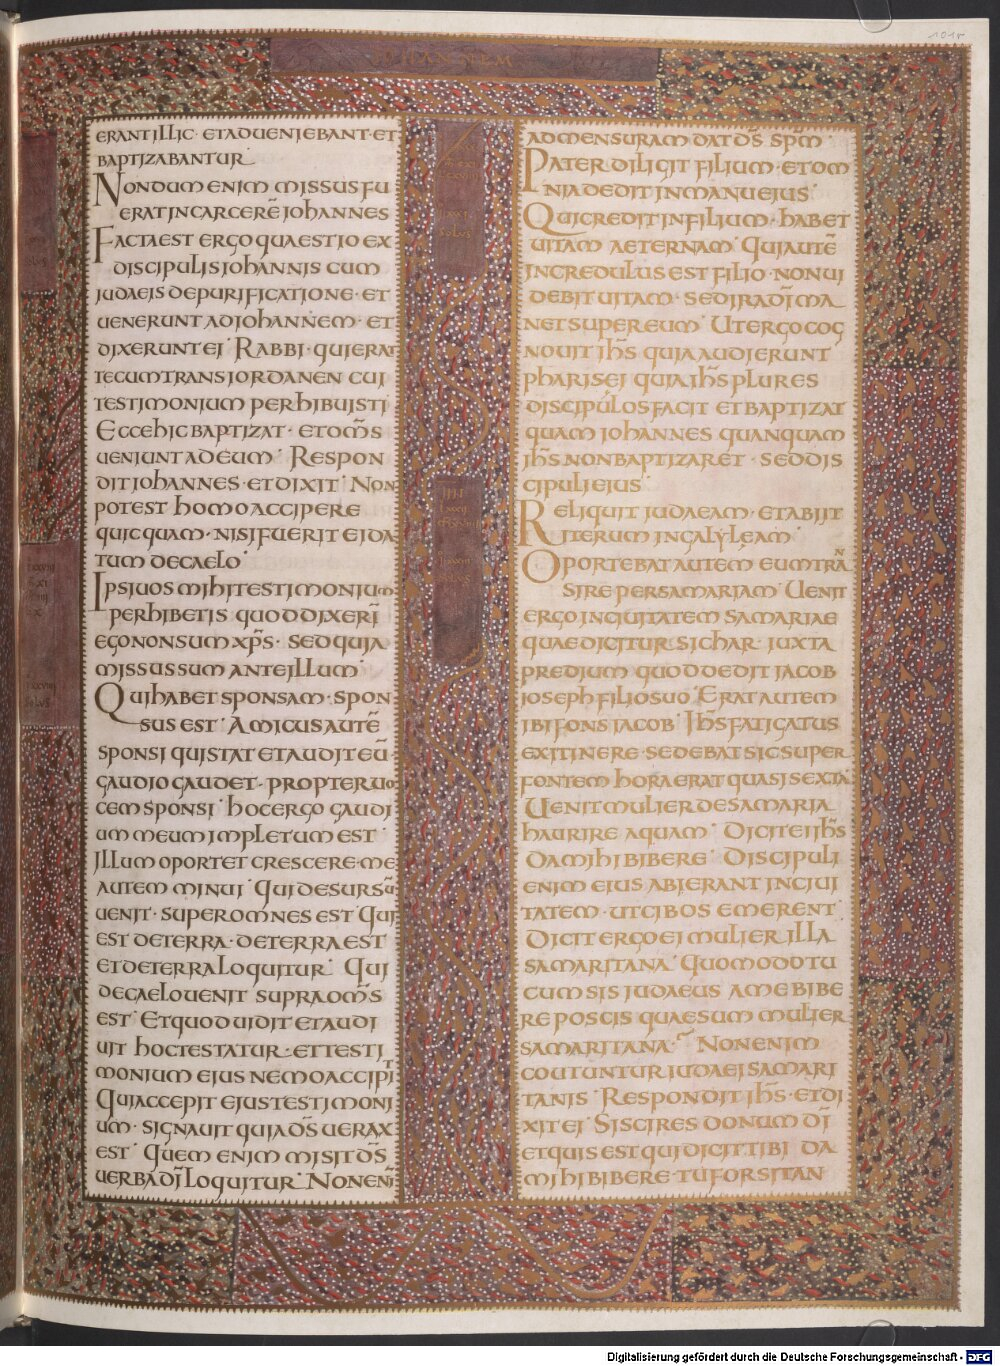 IOHANNEM
ERANT ILLIC · ET ADVENIEBANT · ET
BAPTIZABANTUR
NONDUM ENIM MISSUS FU
ERAT IN CARCERĒ IOHANNES
FACTA EST ERGO QUAESTIO EX
DISCIPULIS IOHANNIS CUM
IUDAEIS DE PURIFICATIONE · ET
UENERUNT AD IOHANNEM · ET
DIXERUNT EI · RABBI · QUI ERAT
TECUM TRANS IORDANEN CUI
TESTIMONIUM PERHIBUISTI
ECCE HIC BAPTIZAT · ET OM̄S
UENIUNT AD EUM · RESPON
DIT IOHANNES · ET DIXIT · NON
POTEST HOMO ACCIPERE
QUICQUAM · NISI FUERIT EI DA
TUM DE CAELO
IPSI UOS MIHI TESTIMONIUM
PERHIBETIS QUOD DIXERĪ
EGO NON SUM XP̄S · SED QUIA
MISSUS SUM ANTE ILLUM
QUI HABET SPONSAM · SPON
SUS EST · AMICUS AUTĒ
SPONSI QUI STAT ET AUDIT EŪ ·
GAUDIO GAUDET · PROPTER UO
CEM SPONSI · HOC ERGO GAUDI
UM MEUM IMPLETUM EST ·
ILLUM OPORTET CRESCERE · ME
AUTEM MINUI · QUI DESURSŪ
UENIT · SUPER OMNES EST QUI
EST DE TERRA · DE TERRA EST
ET DE TERRA LOQUITUR · QUI
DE CAELO UENIT SUPRA OM̄S
EST · ET QUOD UIDIT ET AUDI
UIT HOC TESTATUR · ET TESTI
MONIUM EIUS NEMO ACCIPIT
QUI ACCEPIT EIUS TESTIMONI
UM · SIGNAUIT QUIA D̄S UERAX
EST · QUEM ENIM MISIT D̄S
UERBA DĪ LOQUITUR · NON ENĪ
AD MENSURAM DAT D̄S SP̄M
PATER DILIGIT FILIUM · ET OM
NIA DEDIT IN MANU EIUS ·
QUI CREDIT IN FILIUM · HABET
UITAM AETERNAM · QUI AUTĒ
INCREDULUS EST FILIO · NON UI
DEBIT UITAM · SED IRA DĪ MA
NET SUPER EUM · UT ERGO COG
NOUIT IH̄S QUIA AUDIERUNT
PHARISEI QUIA IH̄S PLURES
DISCIPULOS FACIT ET BAPTIZAT
QUAM IOHANNES QUANQUAM
IH̄S NON BAPTIZARET · SED DIS
CIPULI EIUS
RELIQUIT IUDAEAM · ET ABIIT
ITERUM IN GALYLEAM
OPORTEBAT AUTEM EUM TRAN̄
SIRE PER SAMARIAM · UENIT
ERGO IN CIUITATEM SAMARIAE
QUAE DICITUR SICHAR · IUXTA
PREDIUM QUOD DEDIT IACOB
IOSEPH FILIO SUO · ERAT AUTEM
IBI FONS IACOB · IH̄S FATIGATUS
EX ITINERE · SEDEBAT SIC SUPER
FONTEM HORA ERAT QUASI SEXTA
UENIT MULIER DE SAMARIA
HAURIRE AQUAM · DICIT EI IH̄S
DA MIHI BIBERE · DISCIPULI
ENIM EIUS ABIERANT IN CIUI
TATEM · UT CIBOS EMERENT ·
DICIT ERGO EI MULIER ILLA
SAMARITANA · QUOMODO TU
CUM SIS IUDAEUS A ME BIBE
RE POSCIS QUAE SUM MULIER
SAMARITANA · NON ENIM
COUTUNTUR IUDAEI SAMARI
TANIS · RESPONDIT IH̄S · ET DI
XIT EI · SI SCIRES DONUM DĪ
ET QUIS EST QUI DICIT TIBI DA
MIHI BIBERE · TU FORSITAN
Digitalisierung gefördert durch die Deutsche Forschungsgemeinschaft - DFG